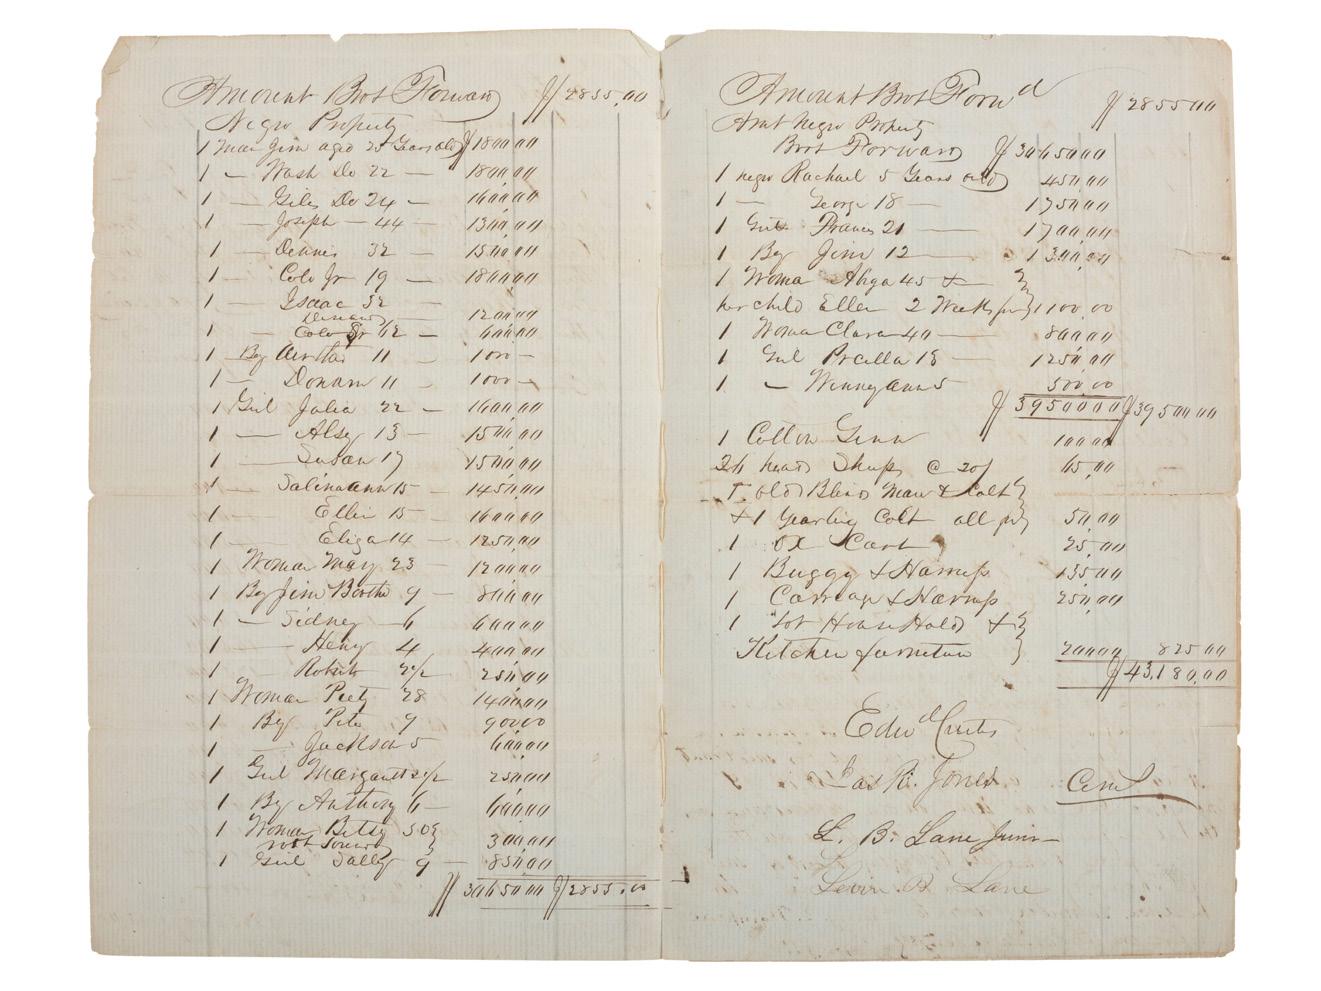 Amount Brot Forward $2855.00
Negro Property
1 Man Jim aged 25 Years old $1800.00
1 — Wash Do 22 — 1800.00
1 — Giles Do 24 — 1600.00
1 — Joseph — 44 — 1300.00
1 — Dennis 32 — 1500.00
1 — Cole Jr 19 — 1800.00
1 — Isaac 52 —
1200.00
1 — Cole Sr 62 — 600.00
1 By 11 — 1000 —
1 — Donam 11 — 1000 —
1 Girl Julia 22 — 1600.00
1 — Alsy 13 — 1500.00
1 — Susan 17 1500.00
1 — Salinaann 15 — 1450.00
1 Ellen 15 — 1600.00
1 — Eliza 14 — 1250.00
1 Woman May 23 — 1200.00
1 By Jim Boothe 9 — 800.00
1 — Sidney — 6 600.00
1 — Heny 4 400.00
1 — Robert 2½ 250.00
1 Woman Peety 28 1400.00
1 By Pete 9 900.00
1 — Jackson 5 600.00
1 Girl Margarett 2½ 250.00
1 By Anthony 6 — 600.00
1 Woman Betsy 50}
not Sound} 300.00
1 Girl Sally 9 — 850.00
$30650.00 $2855.00
Amount Brot Forwd $2855.00
Amt Negro Property
Brot Forward $30650.00
1 negro Rachael 5 Years old 450.00
1 — George 18 — 1750.00
1 Girl Frances 21 — 1700.00
1 By Jim 12 — 1300.00
1 Woman 45 & —}
her child Ellen 2 Weeks } 1100.00
1 Woma Clara 40 — 800.00
1 Girl Prcilla 15 — 1250.00
1 — Winnyann 5 500.00
$39500.00 $39500.00
1 Cotton Ginn 100.00
26 head Sheep @ 20/ 65.00
1 old Blind Mare & Colt}
& 1 Yearling Colt all } 50.00
1 OX Cart 25.00
1 Buggy & Harness 135.00
1 Carriage & Harness 250.00
1 Lot House Hold &}
Kitchen furneture } 200.00 825.00
$43,180.00
Edwd Curtis
Jas R. Jones
L. B. Lane Junr
Levin B Lane